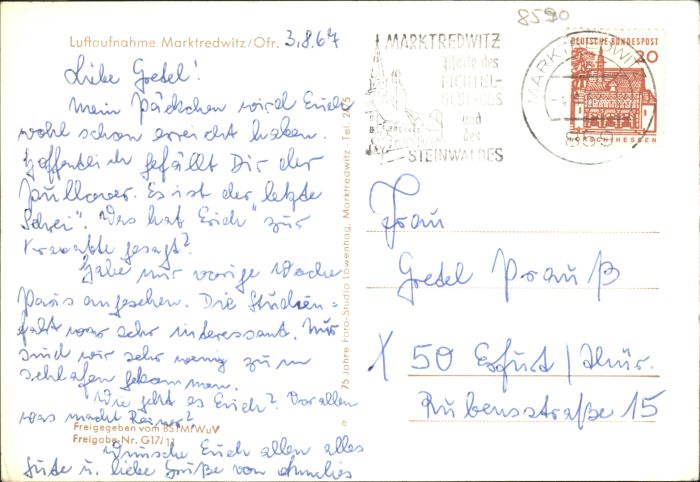 8590
Luftaufnahme Marktredwitz/Ofr. 3.8.67
Liebe Gretel!
Mein Päckchen wird Euch
wohl schon erreicht haben.
Hoffentlich gefällt Dir der
Pullover. Es ist der "letzte
Schrei". Was hat Erich zur
Krawatte gesagt?
Habe mir vorige Woche
Paris angesehen. Die Studien-
fahrt war sehr interessant. Nur
sind wir sehr wenig zum
schlafen gekommen.
Wie geht es Erich? Vor allen
was macht Rainer?
Wünsche Euch allen alles
Gute u. liebe Grüße von Annelies
Freigegeben vom BStMfWuV
Freigabe-Nr. G17/11
75 Jahre Foto-Studio Löwenhag, Marktredwitz · Tel. 2675
MARKTREDWITZ
Pforte des
FICHTEL-
GEBIRGES
und
des
STEINWALDES
MARKTREDWITZ
DEUTSCHE BUNDESPOST
20
LORSCH/HESSEN
Frau
Gretel Prauß
X 50 Erfurt/Thür.
Rubensstraße 15